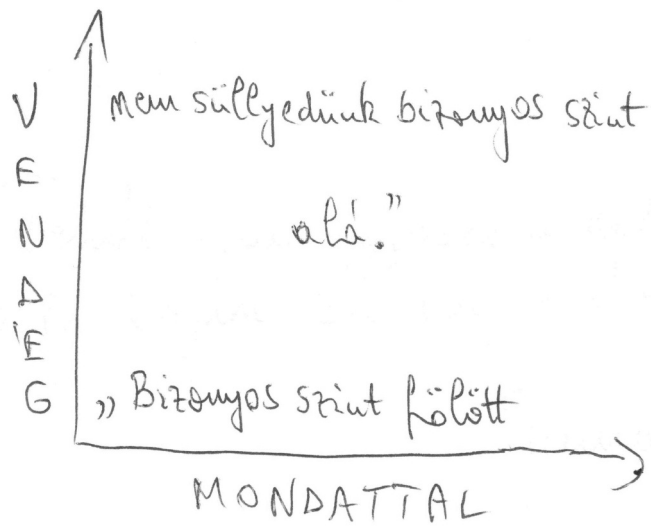 VENDÉG
nem süllyedünk bizonyos szint
alá."
„Bizonyos szint fölött
MONDATTAL